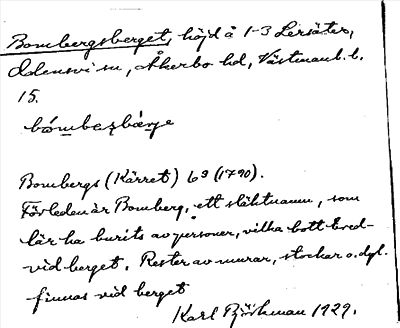 Bombergsberget, höjd å 1-3 Lersäter,
Odensvi sn, Åkerbo hd, Västmanl. l.
15.
bómbæʒbærje
Bombergs (Kärret) b9 (1790).
Förleden är Bomberg, ett släktnamn, som
lär ha burits av personer, vilka bott bred-
vid berget. Rester av murar, stockar o. dyl.
finnas vid berget
Karl Björkman 1929.